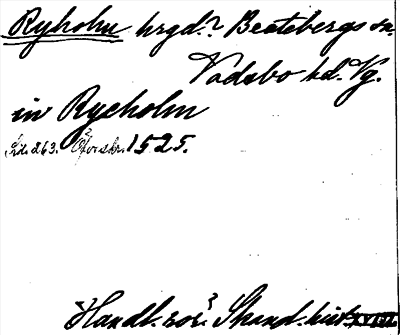 Ryholm hrgd.? Beatebergs sn.
Vadsbo hd. Vg.
in Ryeholm
Sid. 263. Öfverskr. 1525.
Handl. rör? Skand. hist. XVIII.